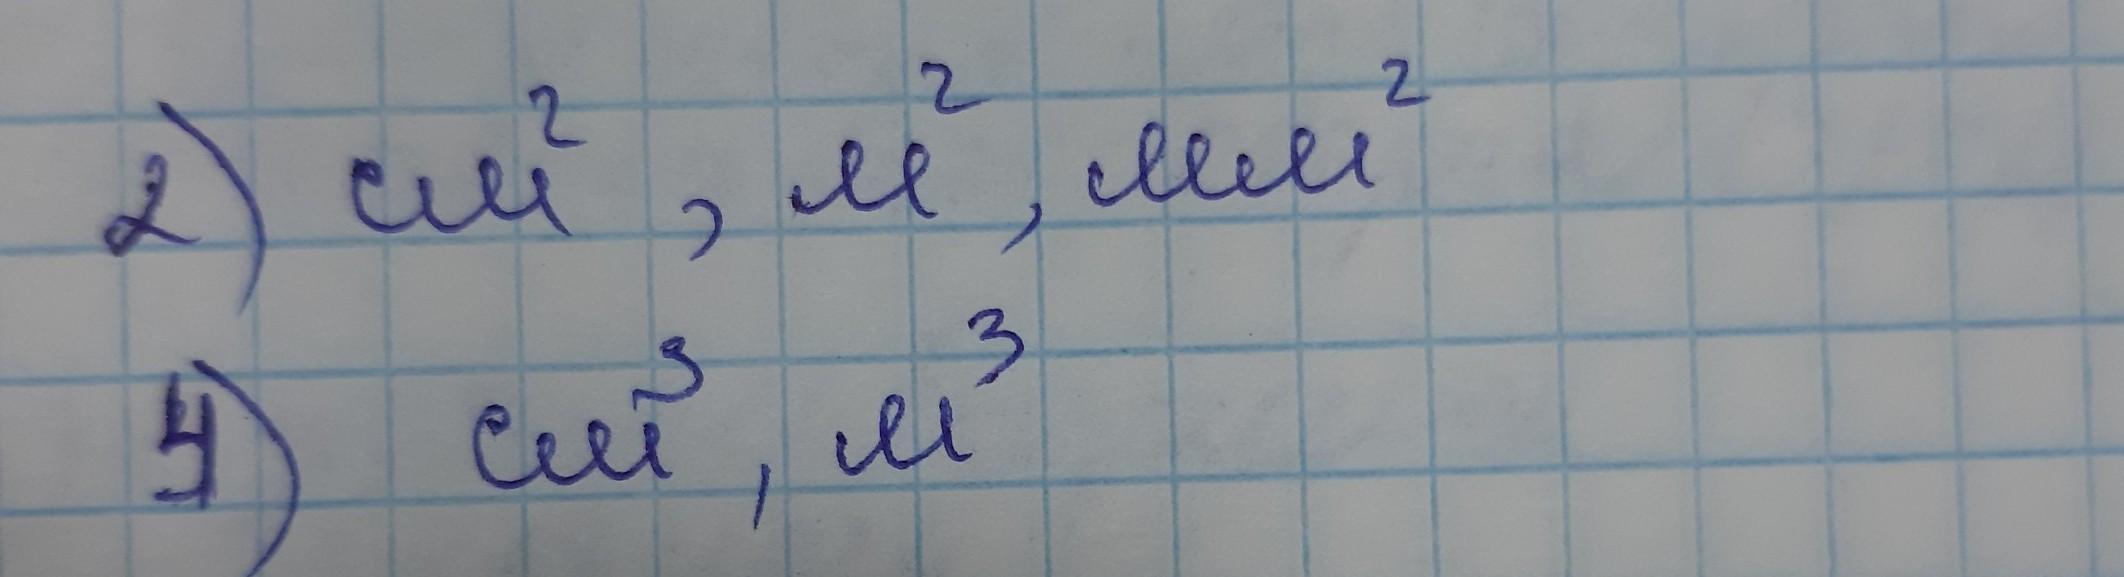 2) см², м², мм²
4) см³, м³